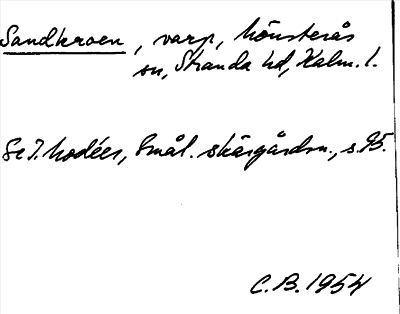 Sandkroen, varp, Mönsterås
sn, Stranda hd, Kalm. l.
Se J. Modéer, Smål. skärgårdsn., s. 95.
C.B. 1954